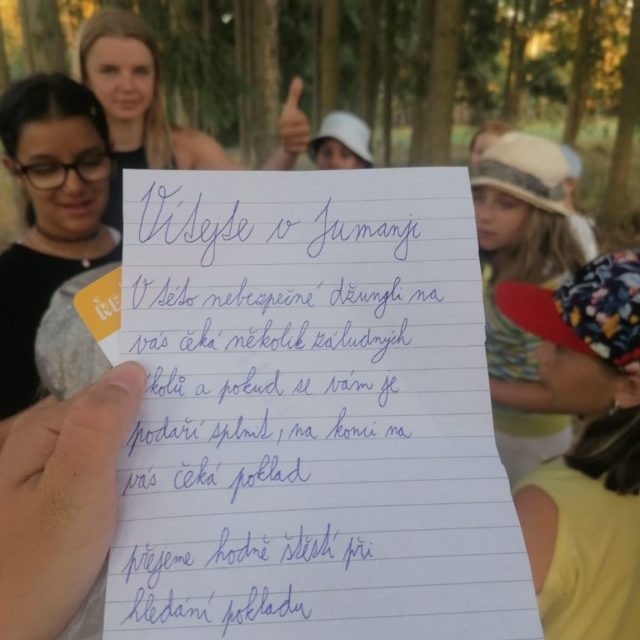 Vítejte v Jumanji
V této nebezpečné džungli na
vás čeká několik záludných
úkolů a pokud se vám je
podaří splnit, na konci na
vás čeká poklad
přejeme hodně štěstí při
hledání pokladu
ŘE